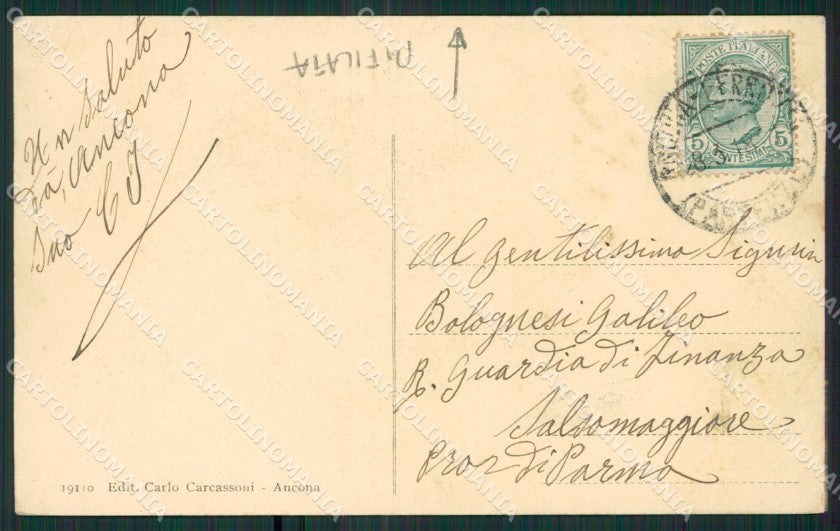 Un saluto
da, Ancona
Suo CJ
POSTE ITALIANE
5 5
CENTESIMI
Al gentilissimo Signior
Bolognesi Galileo
R. Guardia di Finanza
Salsomaggiore
Prov di Parma
19110 Edit. Carlo Carcassoni - Ancona
CARTOLINOMANIA